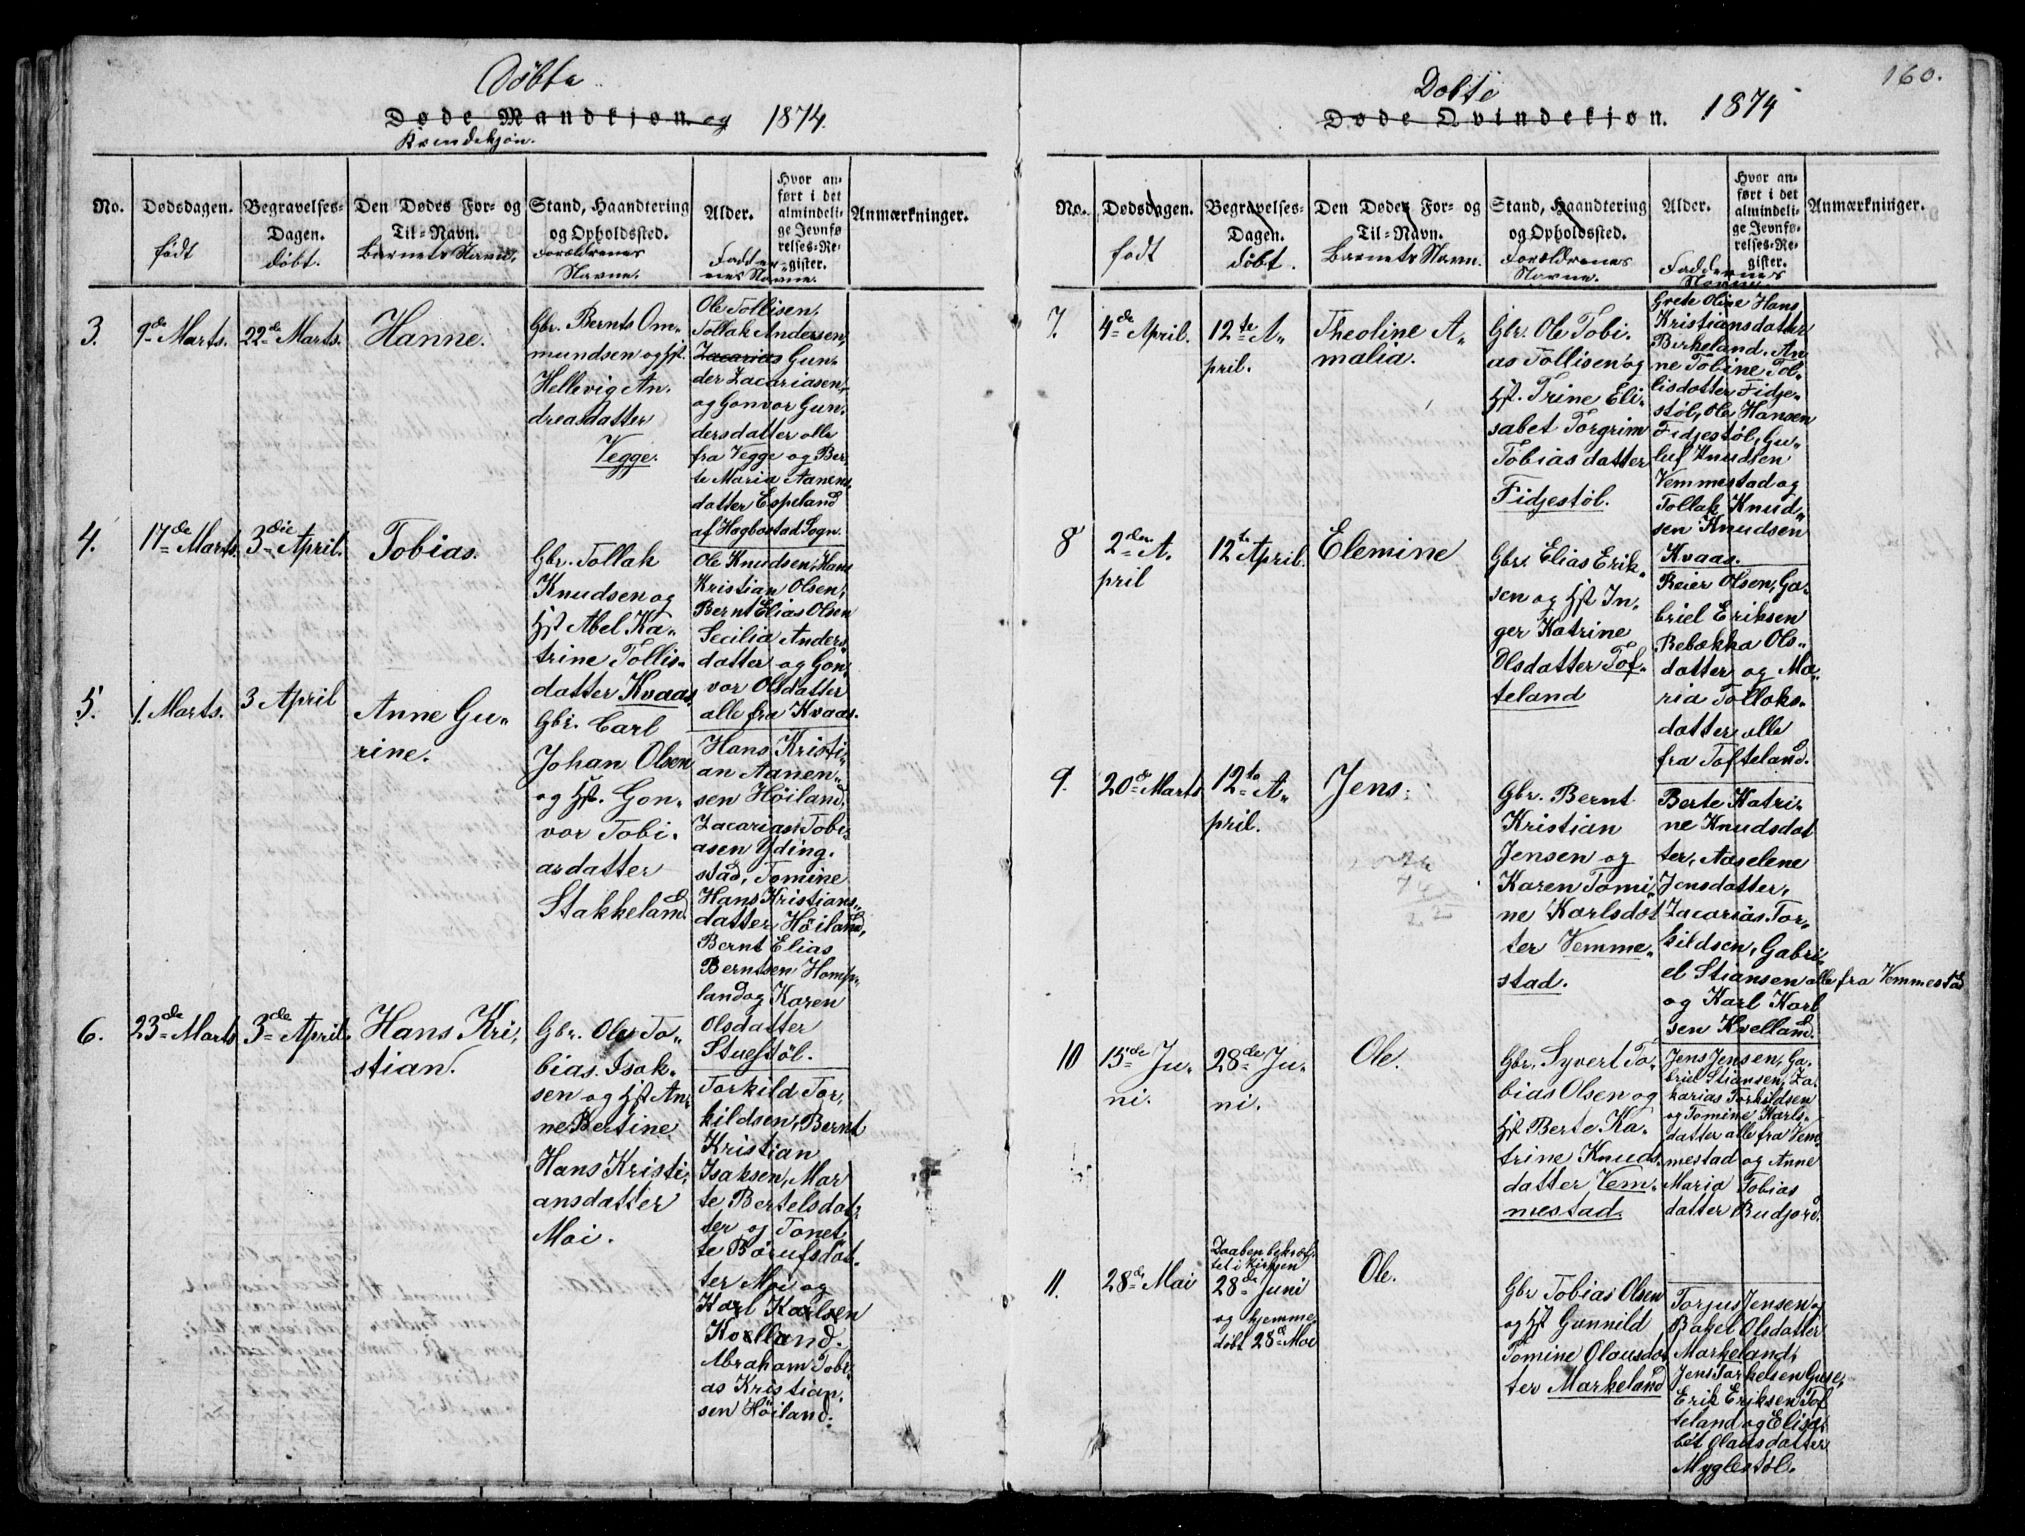 Døbte
Døde Mandkjøn. og 1874.
Kvindekjøn.
No.
Dødsdagen.
født
Begravelses-
Dagen.
døbt.
Den Dødes For- og
Til-Navn.
Barnets Navn.
Stand, Haandtering
og Opholdssted.
Forældrenes
Navne.
Alder.
Faddernes Navne.
Hvor an-
ført i det
almindeli-
ge Jevnfø-
relses-Re-
gister.
Anmærkninger.
3.
9de Marts.
22de Marts.
Hanne.
Gbr. Bernts Om-
mundsen og Hst.
Hellevig An-
dreasdatter
Vegge.
Ole Tollisen,
Tollak Andersen,
Zacarias Gun-
der Zacariasen,
og Gonvor Gun-
dersdatter alle
fra Vegge og Ber-
te Maria Aanens-
datter Espeland
af Hægbostad Sogn.
4.
17de Marts.
3die April.
Tobias.
Gbr. Tollak
Knudsen og
Hst Abel Ka-
trine Tollis-
datter Kvaas.
Ole Knudsen, Hans
Kristian Olsen,
Bernt Elias Olsen
Secilia Anders-
datter og Gon-
vor Olsdatter
alle fra Kvaas.
5.
1. Marts.
3 April
Anne Gu-
rine.
Gbr. Carl
Johan Olsen
og Hst. Gon-
vor Tobi-
asdatter
Stakkeland
Hans Kristi-
an Aanen-
sen Höiland,
Zacarias Tobi-
asen Yding-
stad, Tomine
Hans Kristians-
datter Höiland,
Bernt Elias
Berntsen Homp-
land og Karen
Olsdatter
Stuestöl.
6.
23de Marts
3de April.
Hans Kri-
stian.
Gbr. Ole To-
bias Isak-
sen og Hst An-
ne Bertine
Hans Kristi-
ansdatter
Moi.
Torkild Tor-
kildsen, Bernt
Kristian
Isaksen, Mar
te Bertelsdat-
ter og Tonet-
te Börufsdat-
ter Moi og
Karl Karlsen
Kvelland.
Abraham Tobi-
as Kristian-
sen Höiland.
160.
Døbte
Døde Qvindekjøn. 1874
No.
Dødsdagen.
født
Begravelses-
Dagen.
døbt.
Den Dødes For- og
Til-Navn.
Barnets Navn.
Stand, Haandtering
og Opholdssted.
Forældrenes
Navne.
Alder.
Faddernes
Navne.
Hvor an-
ført i det
almindeli-
ge Jevnfø-
relses-Re-
gister.
Anmærkninger.
7.
4de April.
12te A-
pril.
Theoline A-
malia.
Gbr. Ole Tobi-
as Tollisen og
Hst. Trine Eli-
sabet Torgrim
Tobiasdatter
Fidjestöl.
Grete Oline Hans
Kristiansdatter
Birkeland, An
ne Tobine Tol-
lisdatter Fidje-
stöl, Ole Hansen
Fidjestöl, Gu-
luf Knudsen
Vemmestad og
Tollak Knud-
sen Knudsen
Kvaas.
8
2den A-
pril
12te April.
Elemine
Gbr. Elias Erik-
sen og Hst In-
ger Katrine
Olsdatter Tof-
teland
Reier Olsen, Ga-
briel Eriksen
Rebækka Ols-
datter og Ma-
ria Tollaks-
datter, alle
fra Tofteland.
9.
20de Marts
12te A-
pril.
Jens.
Gbr. Bernt
Kristian
Jensen og
Karen Tomi-
ne Karlsdat
ter Vemme-
stad.
Berte Katri-
ne Knudsdat
ter, Aaselene
Jensdatter,
Zacarias Tor-
kildsen, Gabri-
el Stiansen alle fra Vemmestad
og Karl Karl
sen Kvelland.
10
15de Ju-
ni.
28de Ju-
ni.
Ole.
Gbr. Syvert To-
bias Olsen og
Hst Berte Ka-
trine Knuds-
datter Vem-
mestad.
Jens Jensen, Ga-
briel Stiansen, Za-
karias Torkildsen
og Tomine Karls-
datter alle fra Vem
mestad og Anne
Maria Tobias
datter Budjord.
11.
28de Mai
Daaben bekræf-
tet i kirken
28de Juni
og hjemme-
døbt 28de Mai
Ole.
Gbr Tobias Olsen
og Hst Gunnild
Tomine Olausdat
ter Markeland
Torjus Jensen og
Rakel Olsdatter
Markeland,
Jens Torkelsen Guse,
Erik Eriksen Tof
teland og Elisa-
bet Olausdatter
Myglestöl.